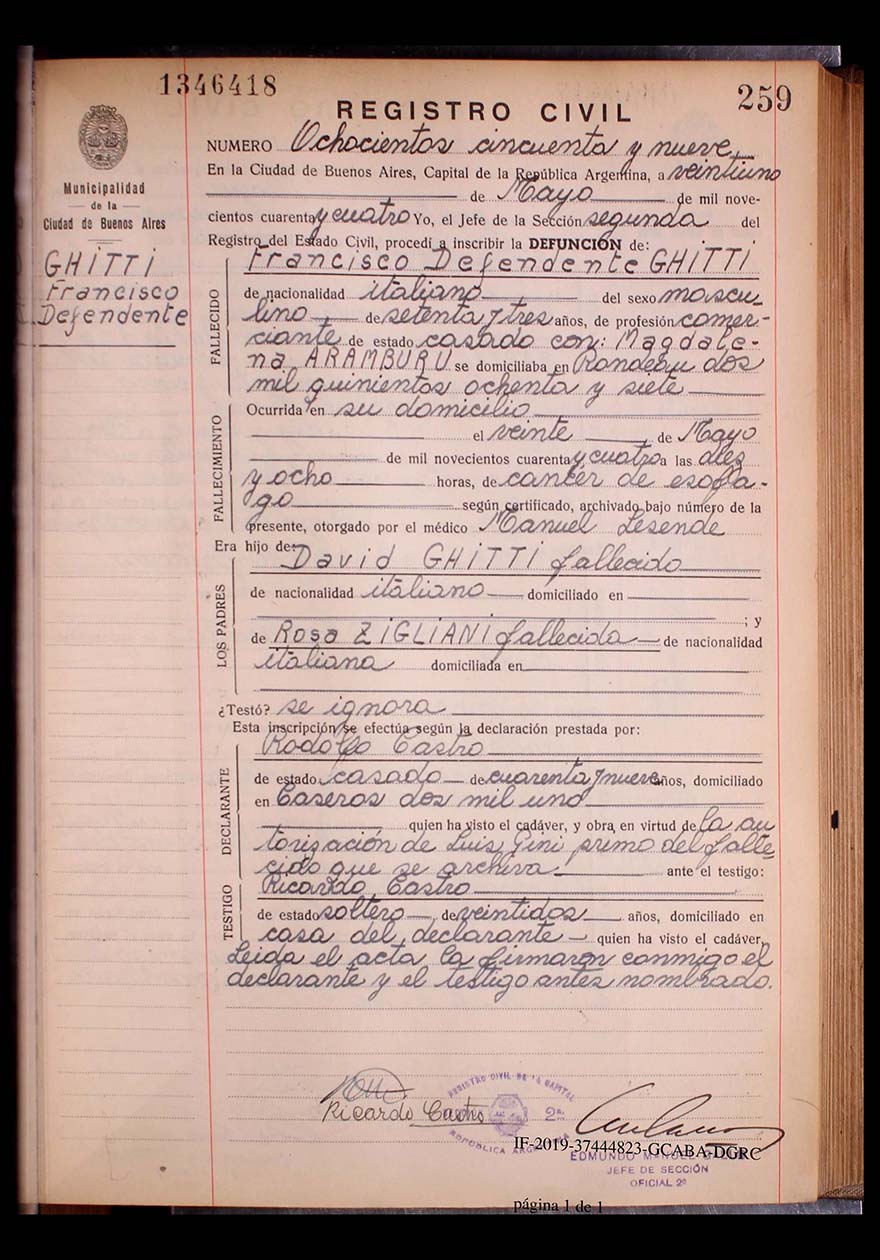 1346418
259
REGISTRO CIVIL
Municipalidad
de la
Ciudad de Buenos Aires
GHITTI
Francisco
Defendente
NUMERO Ochocientos cincuenta y nueve
En la Ciudad de Buenos Aires, Capital de la República Argentina, a veintiuno
de Mayo de mil nove-
cientos cuarenta y cuatro Yo, el Jefe de la Sección segunda del
Registro del Estado Civil, procedí a inscribir la DEFUNCIÓN de:
Francisco Defendente GHITTI
FALLECIDO
de nacionalidad italiano del sexo mascu-
lino de setenta y tres años, de profesión comer-
ciante de estado casado con: Magdale-
na ARAMBURU se domiciliaba en Rondeau dos
mil quinientos ochenta y siete
FALLECIMIENTO
Ocurrida en su domicilio
el veinte de Mayo
de mil novecientos cuarenta y cuatro a las diez
y ocho horas, de cancer de esofa-
go según certificado, archivado bajo número de la
presente, otorgado por el médico Manuel Lesende
Era hijo de: David GHITTI fallecido
LOS PADRES
de nacionalidad italiano domiciliado en
; y
de Rosa ZIGLIANI fallecida de nacionalidad
italiana domiciliada en
¿Testó? se ignora
Esta inscripción se efectúa según la declaración prestada por:
Rodolfo Castro
DECLARANTE
de estado casado de cuarenta y nueve años, domiciliado
en Caseros dos mil uno
quien ha visto el cadáver, y obra en virtud de la au
torización de Luis Gini primo del falle-
cido que se archiva. ante el testigo:
Ricardo Castro
TESTIGO
de estado soltero de veintidos años, domiciliado en
casa del declarante quien ha visto el cadáver,
Leida el acta la firmaron conmigo el
declarante y el testigo antes nombrado.
REGISTRO CIVIL DE LA CAPITAL
2ª
REPUBLICA ARGENTINA
Ricardo Castro
IF-2019-37444823-GCABA-DGRC
EDMUNDO MANUEL
JEFE DE SECCIÓN
OFICIAL 2º
página 1 de 1